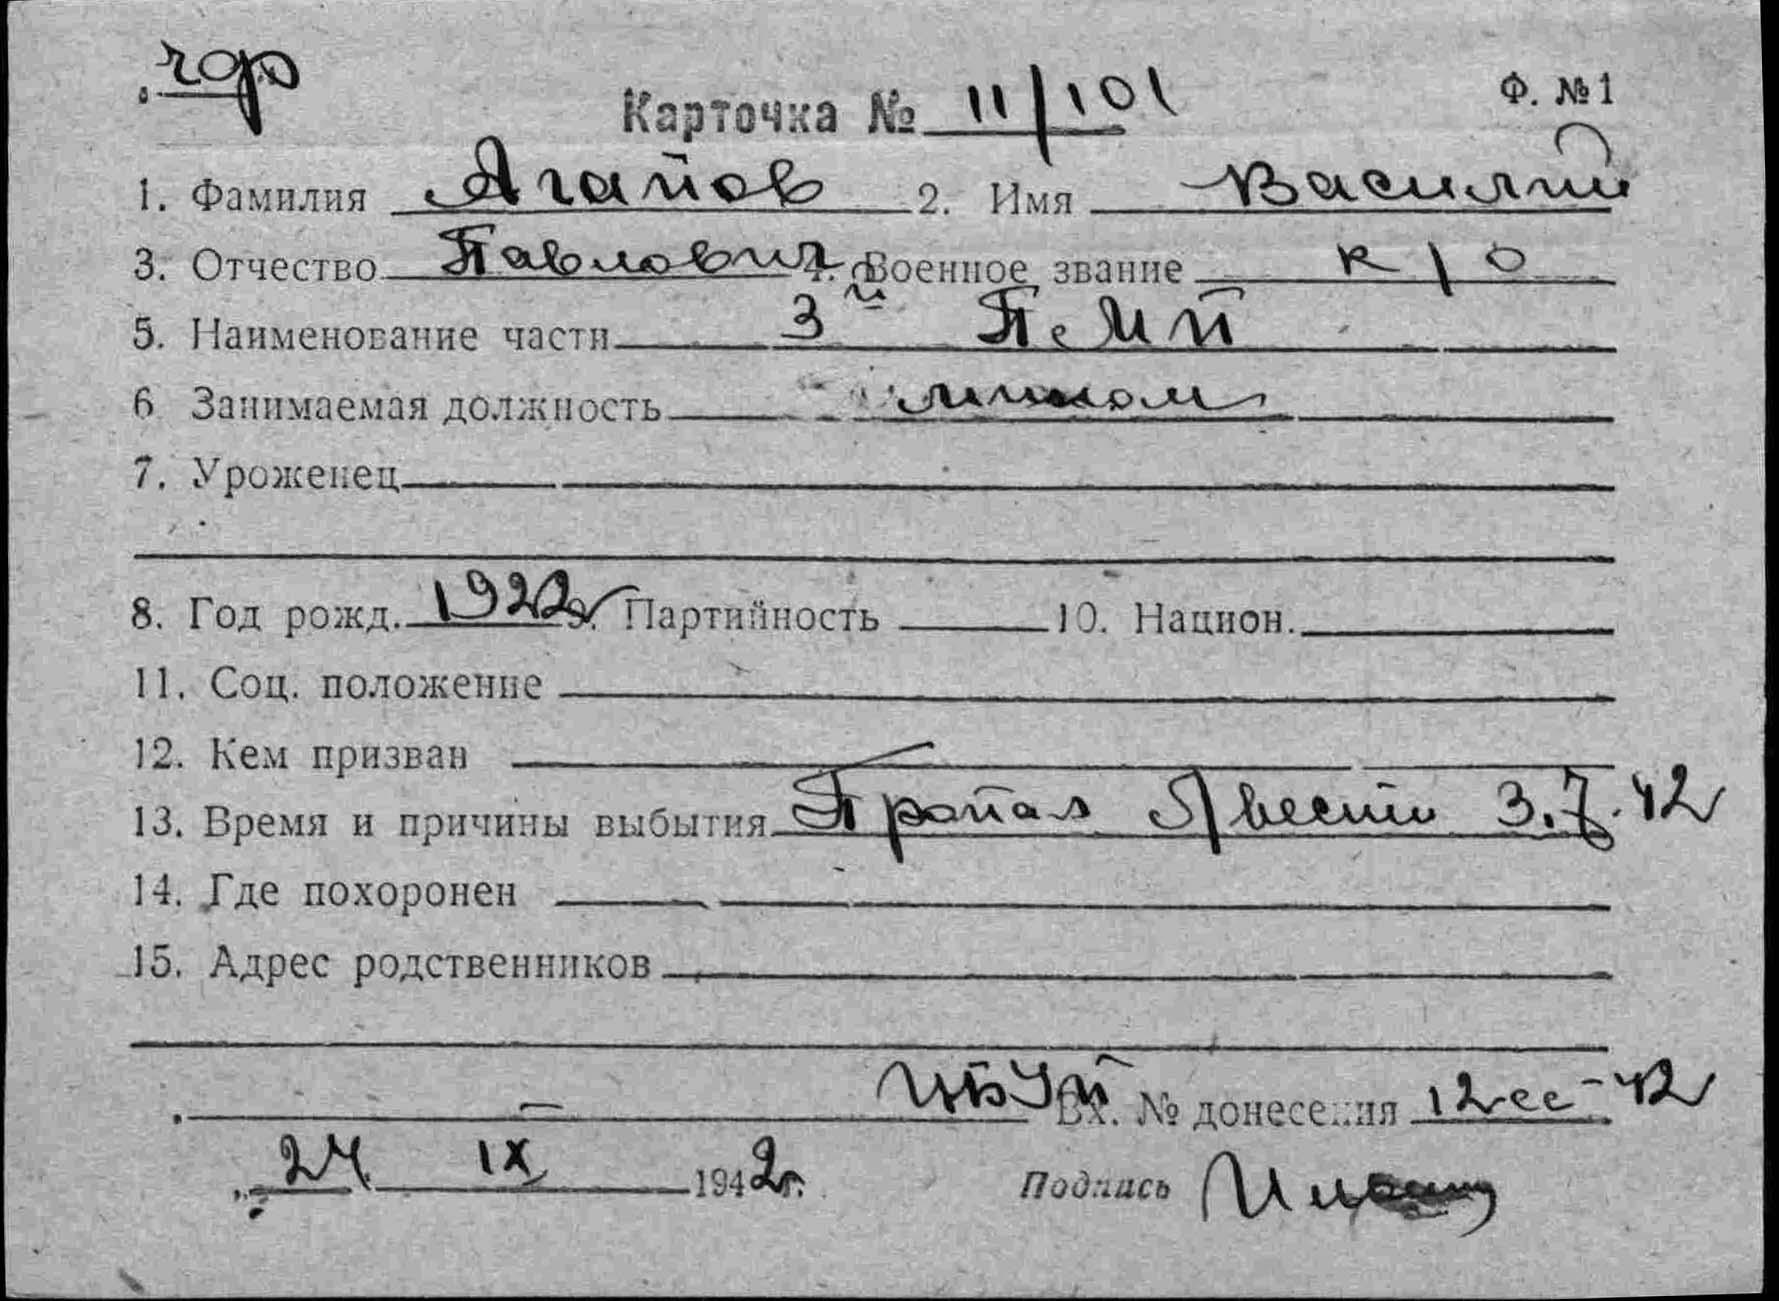 чф
Карточка № 11/101 Ф. № 1
1. Фамилия Агапов 2. Имя Василий
3. Отчество Павлович 4. Военное звание к/о
5. Наименование части 3й
6 Занимаемая должность
7. Уроженец
8. Год рожд. 1922 9. Партийность 10. Национ.
11. Соц. положение
12. Кем призван
13. Время и причины выбытия Пропал 3.7.42
14. Где похоронен
15. Адрес родственников
Вх. № донесения 12сс-42
24 IX 1942г.
Подпись